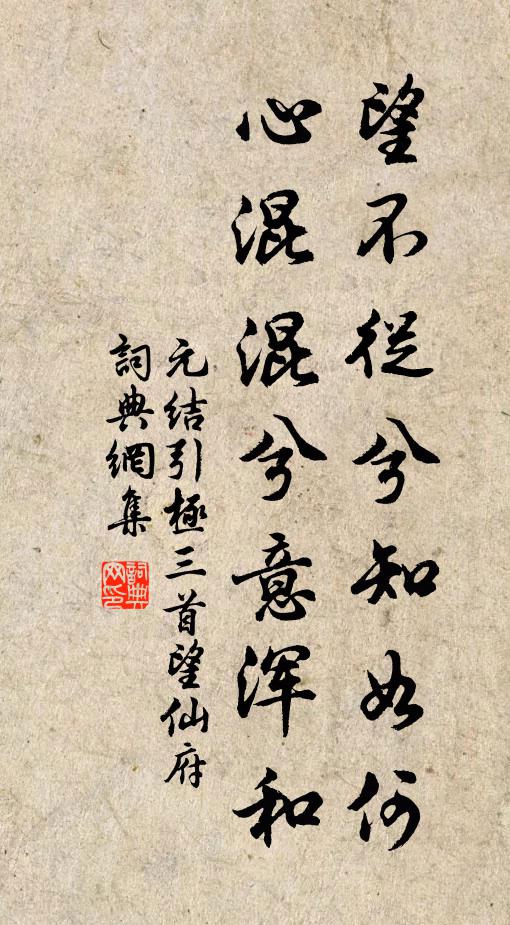 望不從兮知如何
心混混兮意浑和
元结引極三首望仙府
詞典網集
詞典网印